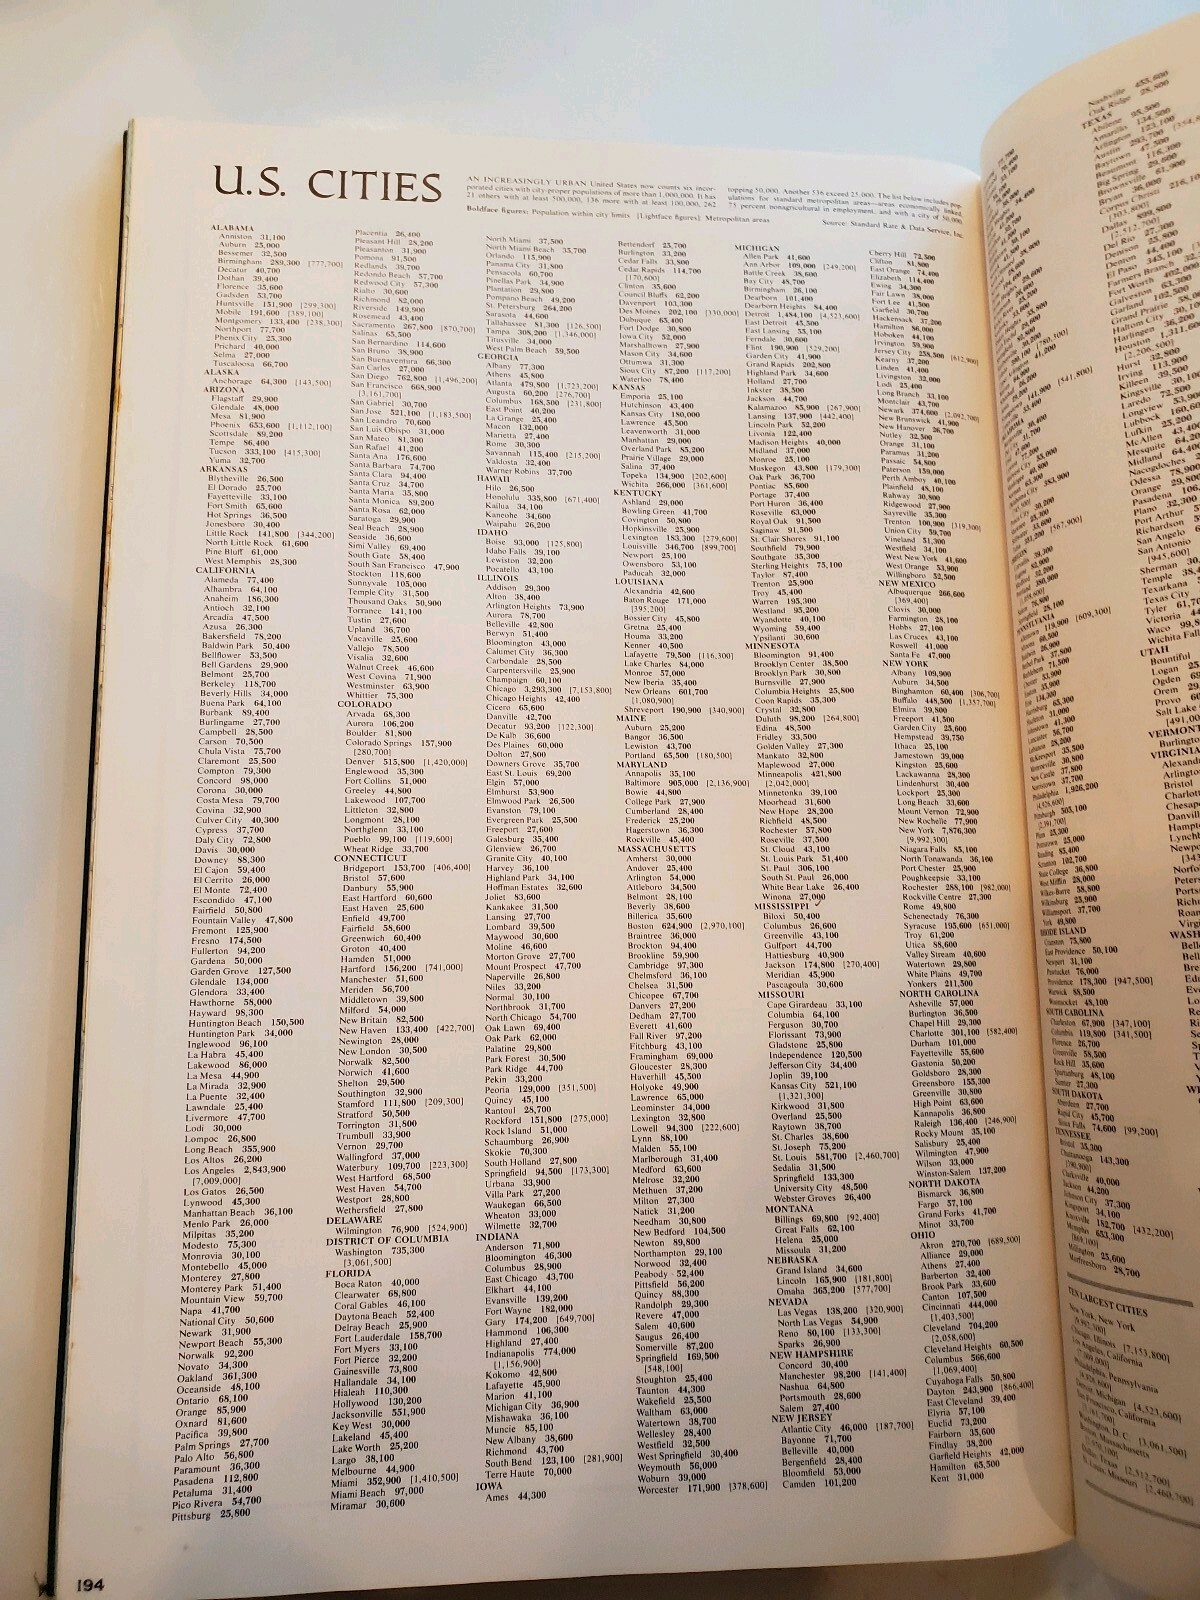 U.S. CITIES
AN INCREASINGLY URBAN United States now counts six incor-
porated cities with city-proper populations of more than 1,000,000. It has
21 others with at least 500,000, 136 more with at least 100,000, 262
topping 50,000. Another 536 exceed 25,000. The list below includes pop-
ulations for standard metropolitan areas—areas economically linked,
75 percent nonagricultural in employment, and with a city of 50,000.
Boldface figures: Population within city limits [Lightface figures]: Metropolitan areas
Source: Standard Rate & Data Service, Inc.
ALABAMA
Anniston 31,100
Auburn 25,000
Bessemer 32,500
Birmingham 289,300 [777,700]
Decatur 40,700
Dothan 39,400
Florence 35,600
Gadsden 53,700
Huntsville 151,900 [299,300]
Mobile 191,600 [389,100]
Montgomery 133,400 [238,300]
Northport 77,700
Phenix City 25,300
Prichard 40,000
Selma 27,000
Tuscaloosa 66,700
ALASKA
Anchorage 64,300 [143,500]
ARIZONA
Flagstaff 29,900
Glendale 48,000
Mesa 81,900
Phoenix 653,600 [1,112,100]
Scottsdale 89,200
Tempe 86,400
Tucson 333,100 [415,300]
Yuma 32,700
ARKANSAS
Blytheville 26,500
El Dorado 25,700
Fayetteville 33,100
Fort Smith 65,600
Hot Springs 36,500
Jonesboro 30,400
Little Rock 141,800 [344,200]
North Little Rock 61,600
Pine Bluff 61,000
West Memphis 28,300
CALIFORNIA
Alameda 77,400
Alhambra 64,100
Anaheim 186,300
Antioch 32,100
Arcadia 47,500
Azusa 26,300
Bakersfield 78,200
Baldwin Park 50,400
Bellflower 53,500
Bell Gardens 29,900
Belmont 25,700
Berkeley 118,700
Beverly Hills 34,000
Buena Park 64,100
Burbank 89,400
Burlingame 27,700
Campbell 28,500
Carson 70,500
Chula Vista 75,700
Claremont 25,500
Compton 79,300
Concord 98,000
Corona 30,000
Costa Mesa 79,700
Covina 32,900
Culver City 40,300
Cypress 37,700
Daly City 72,800
Davis 30,000
Downey 88,300
El Cajon 59,400
El Cerrito 26,000
El Monte 72,400
Escondido 47,100
Fairfield 50,800
Fountain Valley 47,800
Fremont 125,900
Fresno 174,500
Fullerton 94,200
Gardena 50,000
Garden Grove 127,500
Glendale 134,000
Glendora 33,400
Hawthorne 58,000
Hayward 98,300
Huntington Beach 150,500
Huntington Park 34,000
Inglewood 96,100
La Habra 45,400
Lakewood 86,000
La Mesa 44,900
La Mirada 32,900
La Puente 32,400
Lawndale 25,400
Livermore 47,700
Lodi 30,000
Lompoc 26,800
Long Beach 355,900
Los Altos 26,200
Los Angeles 2,843,900
[7,009,000]
Los Gatos 26,500
Lynwood 45,300
Manhattan Beach 36,100
Menlo Park 26,000
Milpitas 35,200
Modesto 75,300
Monrovia 30,100
Montebello 45,000
Monterey 27,800
Monterey Park 51,400
Mountain View 59,700
Napa 41,700
National City 50,600
Newark 31,900
Newport Beach 55,300
Norwalk 92,200
Novato 34,300
Oakland 361,300
Oceanside 48,100
Ontario 68,100
Orange 85,900
Oxnard 81,600
Pacifica 39,800
Palm Springs 27,700
Palo Alto 56,800
Paramount 36,300
Pasadena 112,800
Petaluma 31,400
Pico Rivera 54,700
Pittsburg 25,800
Placentia 26,400
Pleasant Hill 28,200
Pleasanton 31,900
Pomona 91,500
Redlands 39,700
Redondo Beach 57,700
Redwood City 57,300
Rialto 30,600
Richmond 82,000
Riverside 149,900
Rosemead 43,400
Sacramento 267,800 [870,700]
Salinas 65,500
San Bernardino 114,600
San Bruno 38,900
San Buenaventura 66,300
San Carlos 27,000
San Diego 762,800 [1,496,200]
San Francisco 668,900
[3,161,700]
San Gabriel 30,700
San Jose 521,100 [1,183,500]
San Leandro 70,600
San Luis Obispo 31,000
San Mateo 81,300
San Rafael 41,200
Santa Ana 176,600
Santa Barbara 74,700
Santa Clara 94,400
Santa Cruz 34,700
Santa Maria 35,800
Santa Monica 89,200
Santa Rosa 62,000
Saratoga 29,900
Seal Beach 28,900
Seaside 36,600
Simi Valley 69,400
South Gate 58,400
South San Francisco 47,900
Stockton 118,600
Sunnyvale 105,000
Temple City 31,500
Thousand Oaks 50,900
Torrance 141,100
Tustin 27,600
Upland 36,700
Vacaville 25,600
Vallejo 78,500
Visalia 32,600
Walnut Creek 46,600
West Covina 71,900
Westminster 63,900
Whittier 75,300
COLORADO
Arvada 68,300
Aurora 106,200
Boulder 81,800
Colorado Springs 157,900
[280,700]
Denver 515,800 [1,420,000]
Englewood 35,300
Fort Collins 51,000
Greeley 44,800
Lakewood 107,700
Littleton 32,800
Longmont 28,100
Northglenn 33,100
Pueblo 99,100 [119,600]
Wheat Ridge 33,700
CONNECTICUT
Bridgeport 153,700 [406,400]
Bristol 57,600
Danbury 55,900
East Hartford 60,600
East Haven 25,600
Enfield 49,700
Fairfield 58,600
Greenwich 60,400
Groton 40,400
Hamden 51,000
Hartford 156,200 [741,000]
Manchester 51,600
Meriden 56,700
Middletown 39,800
Milford 54,000
New Britain 82,500
New Haven 133,400 [422,700]
Newington 28,000
New London 30,500
Norwalk 82,500
Norwich 41,600
Shelton 29,500
Southington 32,900
Stamford 111,800 [209,300]
Stratford 50,500
Torrington 31,800
Trumbull 33,900
Vernon 29,700
Wallingford 37,000
Waterbury 109,700 [223,300]
West Hartford 68,500
West Haven 54,700
Westport 28,800
Wethersfield 27,800
DELAWARE
Wilmington 76,900 [524,900]
DISTRICT OF COLUMBIA
Washington 735,300
[3,061,500]
FLORIDA
Boca Raton 40,000
Clearwater 68,800
Coral Gables 46,100
Daytona Beach 52,400
Delray Beach 25,900
Fort Lauderdale 158,700
Fort Myers 33,100
Fort Pierce 32,200
Gainesville 73,800
Hallandale 34,100
Hialeah 110,300
Hollywood 130,200
Jacksonville 551,900
Key West 30,000
Lakeland 45,400
Lake Worth 25,200
Largo 38,100
Melbourne 44,900
Miami 352,900 [1,410,500]
Miami Beach 97,000
Miramar 30,600
North Miami 37,500
North Miami Beach 35,700
Orlando 115,900
Panama City 31,800
Pensacola 60,700
Pinellas Park 34,900
Plantation 29,800
Pompano Beach 49,200
St. Petersburg 264,200
Sarasota 44,600
Tallahassee 81,300 [126,500]
Tampa 308,200 [1,346,000]
Titusville 34,000
West Palm Beach 59,500
GEORGIA
Albany 77,300
Athens 45,800
Atlanta 479,800 [1,723,200]
Augusta 60,200 [276,700]
Columbus 168,500 [231,800]
East Point 40,200
La Grange 25,400
Macon 132,000
Marietta 27,400
Rome 30,300
Savannah 115,400 [215,200]
Valdosta 32,400
Warner Robins 37,700
HAWAII
Hilo 26,500
Honolulu 335,800 [671,400]
Kailua 34,100
Kaneohe 34,600
Waipahu 26,200
IDAHO
Boise 93,000 [125,800]
Idaho Falls 39,100
Lewiston 32,200
Pocatello 43,100
ILLINOIS
Addison 29,300
Alton 38,400
Arlington Heights 73,900
Aurora 78,700
Belleville 42,800
Berwyn 51,400
Bloomington 43,000
Calumet City 36,300
Carbondale 28,500
Carpentersville 25,900
Champaign 60,100
Chicago 3,293,300 [7,153,800]
Chicago Heights 42,400
Cicero 65,600
Danville 42,700
Decatur 93,200 [122,300]
De Kalb 36,600
Des Plaines 60,000
Dolton 27,800
Downers Grove 35,700
East St. Louis 69,200
Elgin 57,000
Elmhurst 53,900
Elmwood Park 26,500
Evanston 79,100
Evergreen Park 25,500
Freeport 27,600
Galesburg 35,400
Glenview 26,700
Granite City 40,100
Harvey 36,100
Highland Park 34,100
Hoffman Estates 32,600
Joliet 83,600
Kankakee 31,500
Lansing 27,700
Lombard 39,500
Maywood 30,600
Moline 46,600
Morton Grove 27,700
Mount Prospect 47,700
Naperville 26,800
Niles 33,200
Normal 30,100
Northbrook 31,700
North Chicago 54,700
Oak Lawn 69,400
Oak Park 62,000
Palatine 29,800
Park Forest 30,500
Park Ridge 44,700
Pekin 33,200
Peoria 129,000 [351,500]
Quincy 45,100
Rantoul 28,700
Rockford 151,800 [275,000]
Rock Island 51,000
Schaumburg 26,900
Skokie 70,300
South Holland 27,800
Springfield 94,500 [173,300]
Urbana 33,900
Villa Park 27,200
Waukegan 66,500
Wheaton 33,000
Wilmette 32,700
INDIANA
Anderson 71,800
Bloomington 46,300
Columbus 28,900
East Chicago 43,700
Elkhart 44,100
Evansville 139,200
Fort Wayne 182,000
Gary 174,200 [649,700]
Hammond 106,300
Highland 27,400
Indianapolis 774,000
[1,156,900]
Kokomo 42,800
Lafayette 45,900
Marion 41,100
Michigan City 36,900
Mishawaka 36,100
Muncie 85,100
New Albany 38,600
Richmond 43,700
South Bend 123,100 [281,900]
Terre Haute 70,000
IOWA
Ames 44,300
Bettendorf 25,700
Burlington 33,200
Cedar Falls 33,800
Cedar Rapids 114,700
[170,600]
Clinton 35,600
Council Bluffs 62,200
Davenport 103,300
Des Moines 202,100 [330,000]
Dubuque 65,400
Fort Dodge 30,800
Iowa City 52,000
Marshalltown 27,900
Mason City 34,600
Ottumwa 31,300
Sioux City 87,200 [117,200]
Waterloo 78,400
KANSAS
Emporia 25,100
Hutchinson 43,400
Kansas City 180,000
Lawrence 45,500
Leavenworth 31,000
Manhattan 29,000
Overland Park 85,200
Prairie Village 29,000
Salina 37,400
Topeka 134,900 [202,600]
Wichita 266,000 [361,600]
KENTUCKY
Ashland 29,000
Bowling Green 41,700
Covington 50,800
Hopkinsville 25,900
Lexington 183,300 [279,600]
Louisville 346,700 [899,700]
Newport 25,100
Owensboro 53,100
Paducah 32,000
LOUISIANA
Alexandria 42,600
Baton Rouge 171,000
[395,200]
Bossier City 45,800
Gretna 25,400
Houma 33,200
Kenner 40,500
Lafayette 79,500 [116,300]
Lake Charles 84,000
Monroe 57,000
New Iberia 35,400
New Orleans 601,700
[1,080,900]
Shreveport 190,900 [340,900]
MAINE
Auburn 25,200
Bangor 36,500
Lewiston 43,700
Portland 65,500 [180,500]
MARYLAND
Annapolis 35,100
Baltimore 905,000 [2,136,900]
Bowie 44,800
College Park 27,900
Cumberland 28,400
Frederick 25,200
Hagerstown 36,300
Rockville 45,400
MASSACHUSETTS
Amherst 30,000
Andover 25,400
Arlington 54,000
Attleboro 34,500
Belmont 28,100
Beverly 38,600
Billerica 35,600
Boston 624,900 [2,970,100]
Braintree 36,000
Brockton 94,400
Brookline 59,900
Cambridge 97,300
Chelmsford 36,100
Chelsea 31,500
Chicopee 67,700
Danvers 27,200
Dedham 27,700
Everett 41,600
Fall River 97,200
Fitchburg 43,100
Framingham 69,000
Gloucester 28,300
Haverhill 45,500
Holyoke 49,900
Lawrence 65,000
Leominster 34,000
Lexington 32,800
Lowell 94,300 [222,600]
Lynn 88,100
Malden 55,100
Marlborough 31,400
Medford 63,600
Melrose 32,200
Methuen 37,200
Milton 27,300
Natick 31,200
Needham 30,800
New Bedford 104,500
Newton 89,800
Northampton 29,100
Norwood 32,400
Peabody 52,400
Pittsfield 56,200
Quincy 88,300
Randolph 29,300
Revere 47,000
Salem 40,600
Saugus 26,400
Somerville 87,200
Springfield 169,500
[548,100]
Stoughton 25,400
Taunton 44,300
Wakefield 25,500
Waltham 63,000
Watertown 38,700
Wellesley 28,400
Westfield 32,500
West Springfield 30,400
Weymouth 56,000
Woburn 39,000
Worcester 171,900 [378,600]
MICHIGAN
Allen Park 41,600
Ann Arbor 109,000 [249,200]
Battle Creek 38,600
Bay City 48,700
Birmingham 26,100
Dearborn 101,400
Dearborn Heights 84,400
Detroit 1,484,100 [4,523,600]
East Detroit 45,500
East Lansing 55,100
Ferndale 30,600
Flint 190,900 [529,200]
Garden City 41,900
Grand Rapids 202,800
Highland Park 34,600
Holland 27,700
Inkster 38,500
Jackson 44,700
Kalamazoo 85,900 [267,900]
Lansing 137,900 [442,400]
Lincoln Park 52,200
Livonia 122,400
Madison Heights 40,000
Midland 37,000
Monroe 25,100
Muskegon 43,800 [179,300]
Oak Park 36,700
Pontiac 85,600
Portage 37,400
Port Huron 36,400
Roseville 63,000
Royal Oak 91,500
Saginaw 91,500
St. Clair Shores 91,100
Southfield 79,900
Southgate 35,300
Sterling Heights 75,100
Taylor 87,400
Trenton 25,900
Troy 45,400
Warren 195,300
Westland 95,200
Wyandotte 40,100
Wyoming 59,400
Ypsilanti 30,600
MINNESOTA
Bloomington 91,400
Brooklyn Center 38,500
Brooklyn Park 30,800
Burnsville 27,900
Columbia Heights 25,800
Coon Rapids 35,300
Crystal 32,800
Duluth 98,200 [264,800]
Edina 48,500
Fridley 33,500
Golden Valley 27,300
Mankato 32,800
Maplewood 27,000
Minneapolis 421,800
[2,042,000]
Minnetonka 39,100
Moorhead 31,600
New Hope 28,200
Richfield 48,500
Rochester 57,800
Roseville 37,500
St. Cloud 43,100
St. Louis Park 51,400
St. Paul 306,100
South St. Paul 26,000
White Bear Lake 26,400
Winona 27,000
MISSISSIPPI
Biloxi 50,400
Columbus 26,600
Greenville 43,100
Gulfport 44,700
Hattiesburg 40,900
Jackson 174,800 [270,400]
Meridian 45,900
Pascagoula 30,600
MISSOURI
Cape Girardeau 33,100
Columbia 64,100
Ferguson 30,700
Florissant 73,900
Gladstone 25,800
Independence 120,500
Jefferson City 34,400
Joplin 39,100
Kansas City 521,100
[1,321,300]
Kirkwood 31,800
Overland 25,500
Raytown 38,700
St. Charles 38,600
St. Joseph 75,200
St. Louis 581,700 [2,460,700]
Sedalia 31,500
Springfield 133,300
University City 48,500
Webster Groves 26,400
MONTANA
Billings 69,800 [92,400]
Great Falls 62,100
Helena 25,000
Missoula 31,200
NEBRASKA
Grand Island 34,600
Lincoln 165,900 [181,800]
Omaha 365,200 [577,700]
NEVADA
Las Vegas 138,200 [320,900]
North Las Vegas 54,900
Reno 80,100 [133,300]
Sparks 26,900
NEW HAMPSHIRE
Concord 30,400
Manchester 98,200 [141,400]
Nashua 64,800
Portsmouth 28,600
Salem 27,400
NEW JERSEY
Atlantic City 46,000 [187,700]
Bayonne 71,700
Belleville 40,000
Bergenfield 28,400
Bloomfield 53,000
Camden 101,200
Cherry Hill 72,500
Clifton 81,800
East Orange 74,400
Elizabeth 114,400
Ewing 34,300
Fair Lawn 38,000
Fort Lee 41,500
Garfield 30,700
Hackensack 37,200
Hamilton 86,000
Hoboken 44,100
Irvington 59,900
Jersey City 258,500 [612,900]
Kearny 37,200
Linden 41,400
Livingston 32,000
Lodi 25,400
Long Branch 33,100
Montclair 43,700
Newark 374,600 [2,092,700]
New Brunswick 41,900
New Hanover 26,700
Nutley 32,500
Orange 31,100
Paramus 31,200
Passaic 54,800
Paterson 159,000
Perth Amboy 40,100
Plainfield 48,100
Rahway 30,800
Ridgewood 27,900
Sayreville 35,300
Trenton 100,900 [319,300]
Union City 59,700
Vineland 51,300
Westfield 34,100
West New York 41,600
West Orange 53,900
Willingboro 52,500
NEW MEXICO
Albuquerque 266,600
[369,400]
Clovis 30,000
Farmington 28,100
Hobbs 27,100
Las Cruces 43,100
Roswell 41,000
Santa Fe 47,000
NEW YORK
Albany 109,900
Auburn 34,500
Binghamton 60,400 [306,700]
Buffalo 448,500 [1,357,700]
Elmira 39,800
Freeport 41,500
Garden City 25,600
Hempstead 39,750
Ithaca 25,100
Jamestown 39,000
Kingston 25,600
Lackawanna 28,300
Lindenhurst 30,400
Lockport 25,300
Long Beach 33,600
Mount Vernon 72,900
New Rochelle 77,900
New York 7,876,300
[9,992,300]
Niagara Falls 85,100
North Tonawanda 36,100
Port Chester 25,900
Poughkeepsie 33,100
Rochester 288,100 [982,000]
Rockville Centre 27,300
Rome 49,800
Schenectady 76,300
Syracuse 195,600 [651,000]
Troy 61,200
Utica 88,600
Valley Stream 40,600
Watertown 29,800
White Plains 49,700
Yonkers 211,500
NORTH CAROLINA
Asheville 57,000
Burlington 36,500
Chapel Hill 29,300
Charlotte 301,100 [582,400]
Durham 101,000
Fayetteville 55,600
Gastonia 50,200
Goldsboro 28,300
Greensboro 155,300
Greenville 30,800
High Point 63,600
Kannapolis 36,800
Raleigh 136,400 [246,900]
Rocky Mount 35,100
Salisbury 25,400
Wilmington 47,900
Wilson 33,000
Winston-Salem 137,200
NORTH DAKOTA
Bismarck 36,800
Fargo 57,100
Grand Forks 41,700
Minot 33,700
OHIO
Akron 270,700 [689,500]
Alliance 29,000
Athens 27,400
Barberton 32,400
Brook Park 33,600
Canton 107,500
Cincinnati 444,000
[1,403,500]
Cleveland 704,200
[2,058,600]
Cleveland Heights 60,500
Columbus 566,600
[1,069,400]
Cuyahoga Falls 50,800
Dayton 243,900 [866,400]
East Cleveland 39,400
Elyria 57,100
Euclid 73,200
Fairborn 35,600
Findlay 38,200
Garfield Heights 42,000
Hamilton 65,500
Kent 31,000
194
Philadelphia 1,926,200
RHODE ISLAND
East Providence 50,100
Providence 178,300 [947,500]
SOUTH CAROLINA
Charleston 67,900 [347,100]
Columbia 119,800 [341,500]
SOUTH DAKOTA
Rapid City 45,700
Sioux Falls 74,600 [99,200]
TENNESSEE
Chattanooga 143,300
Kingsport 34,100
Knoxville 182,700 [432,200]
Memphis 653,300
Millington 25,600
Murfreesboro 28,700
TEN LARGEST CITIES
New York, New York
Chicago, Illinois [7,153,800]
Philadelphia, Pennsylvania
Detroit, Michigan [4,523,600]
Nashville 455,600
Oak Ridge 28,800
TEXAS
Abilene 95,500
Amarillo 134,500
Arlington 123,100
UTAH
Bountiful
Logan
Ogden
Orem
Provo
Salt Lake
VERMONT
Burlington